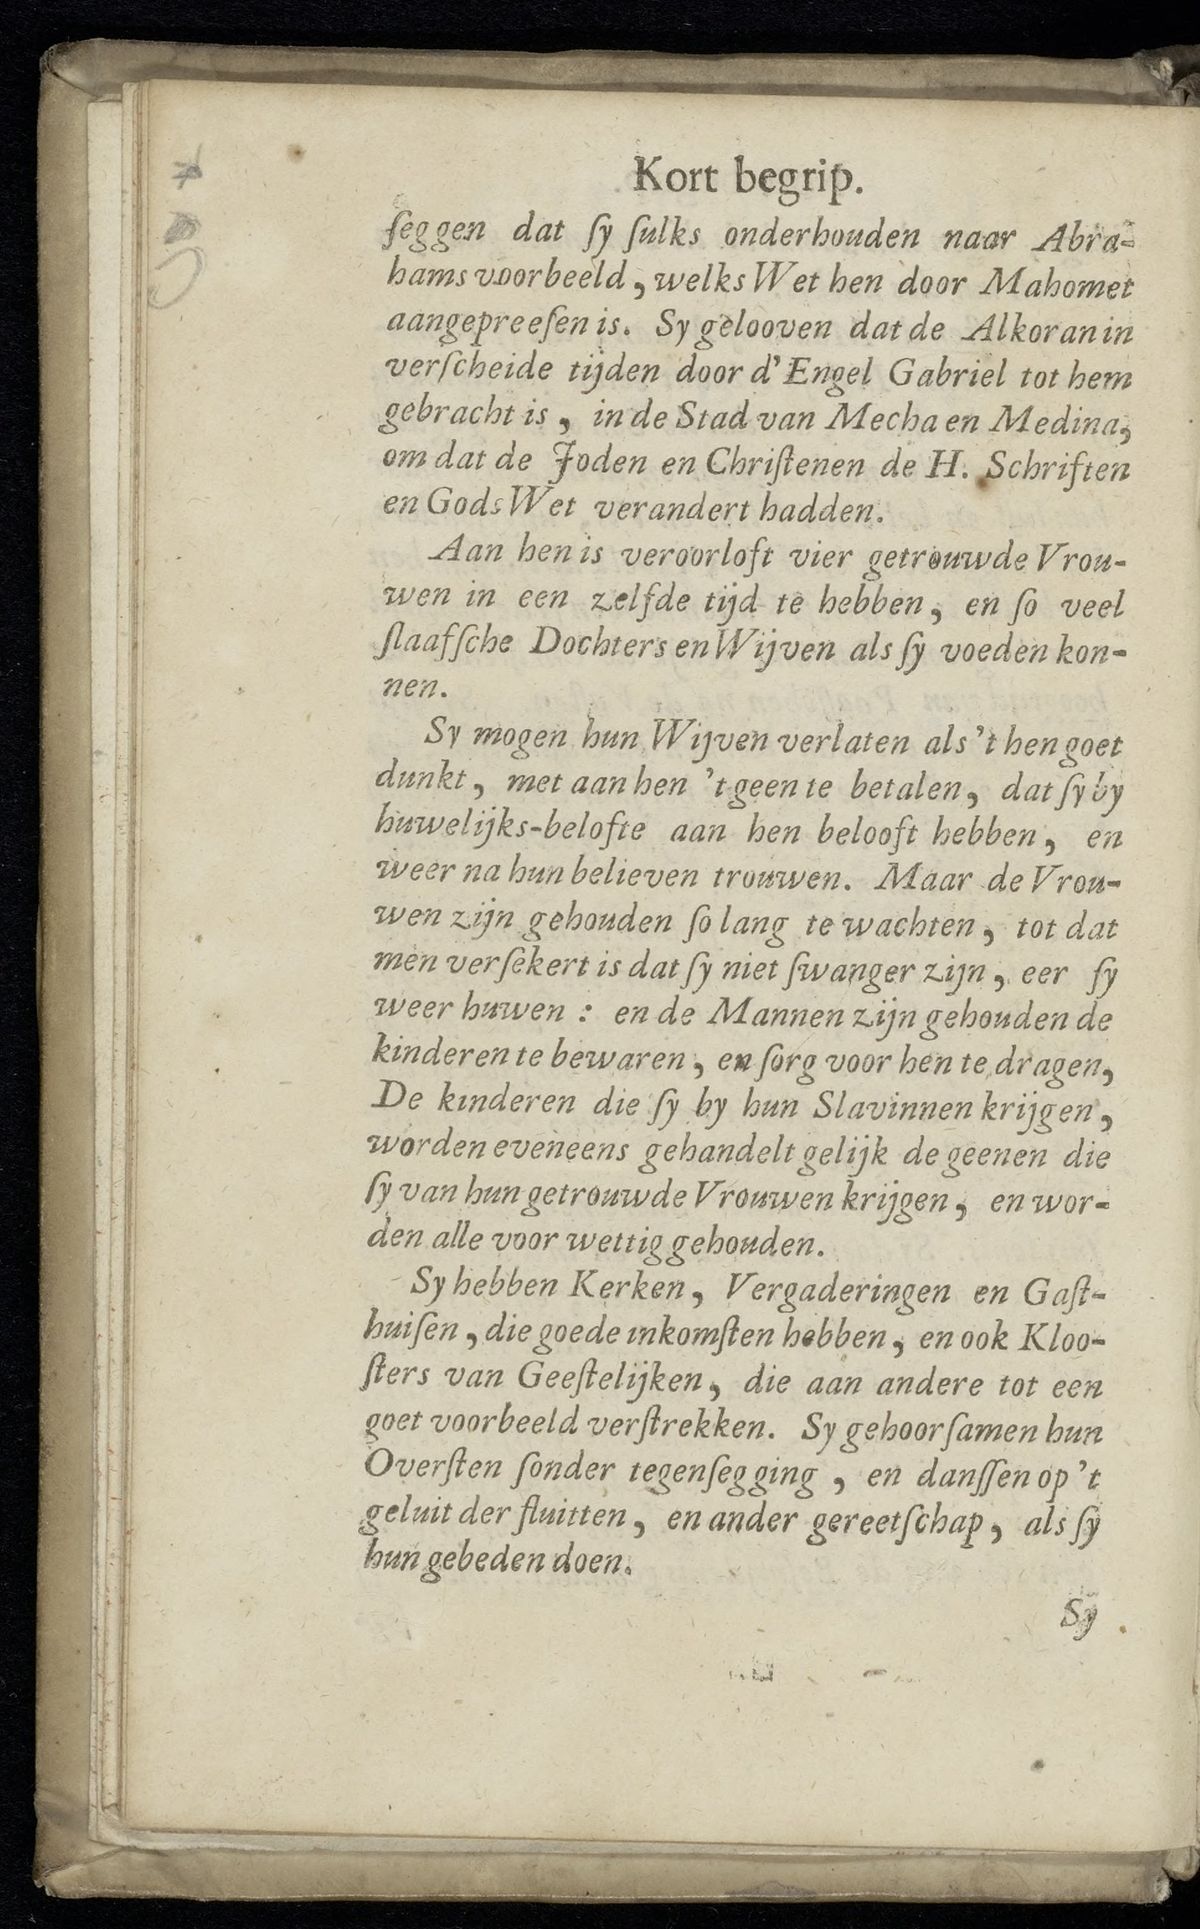 Kort begrip.
ſeggen dat ſy ſulks onderhouden naar Abra-
hams voorbeeld, welks Wet hen door Mahomet
aangepreeſen is. Sy gelooven dat de Alkoran in
verſcheide tijden door d'Engel Gabriel tot hem
gebracht is, in de Stad van Mecha en Medina,
om dat de Joden en Chriſtenen de H. Schriften
en Gods Wet verandert hadden.
Aan hen is veroorloft vier getrouwde Vrou-
wen in een zelfde tijd te hebben, en ſo veel
ſlaafſche Dochters en Wijven als ſy voeden kon-
nen.
Sy mogen hun Wijven verlaten als 't hen goet
dunkt, met aan hen 't geen te betalen, dat ſy by
huwelijks-belofte aan hen belooft hebben, en
weer na hun believen trouwen. Maar de Vrou-
wen zijn gehouden ſo lang te wachten, tot dat
men verſekert is dat ſy niet ſwanger zijn, eer ſy
weer huwen: en de Mannen zijn gehouden de
kinderen te bewaren, en ſorg voor hen te dragen,
De kinderen die ſy by hun Slavinnen krijgen,
worden eveneens gehandelt gelijk de geenen die
ſy van hun getrouwde Vrouwen krijgen, en wor-
den alle voor wettig gehouden.
Sy hebben Kerken, Vergaderingen en Gaſt-
huiſen, die goede inkomſten hebben, en ook Kloo-
ſters van Geeſtelijken, die aan andere tot een
goet voorbeeld verſtrekken. Sy gehoorſamen hun
Overſten ſonder tegenſegging, en danſſen op 't
geluit der fluitten, en ander gereetſchap, als ſy
hun gebeden doen.
Sy